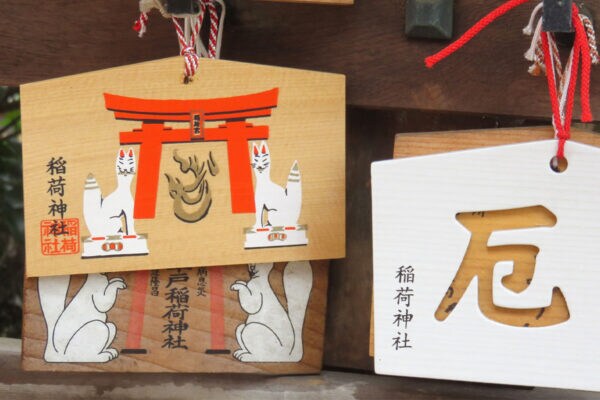 稲荷神社
稲荷
神社
戸稲荷神社
稲荷神社
厄